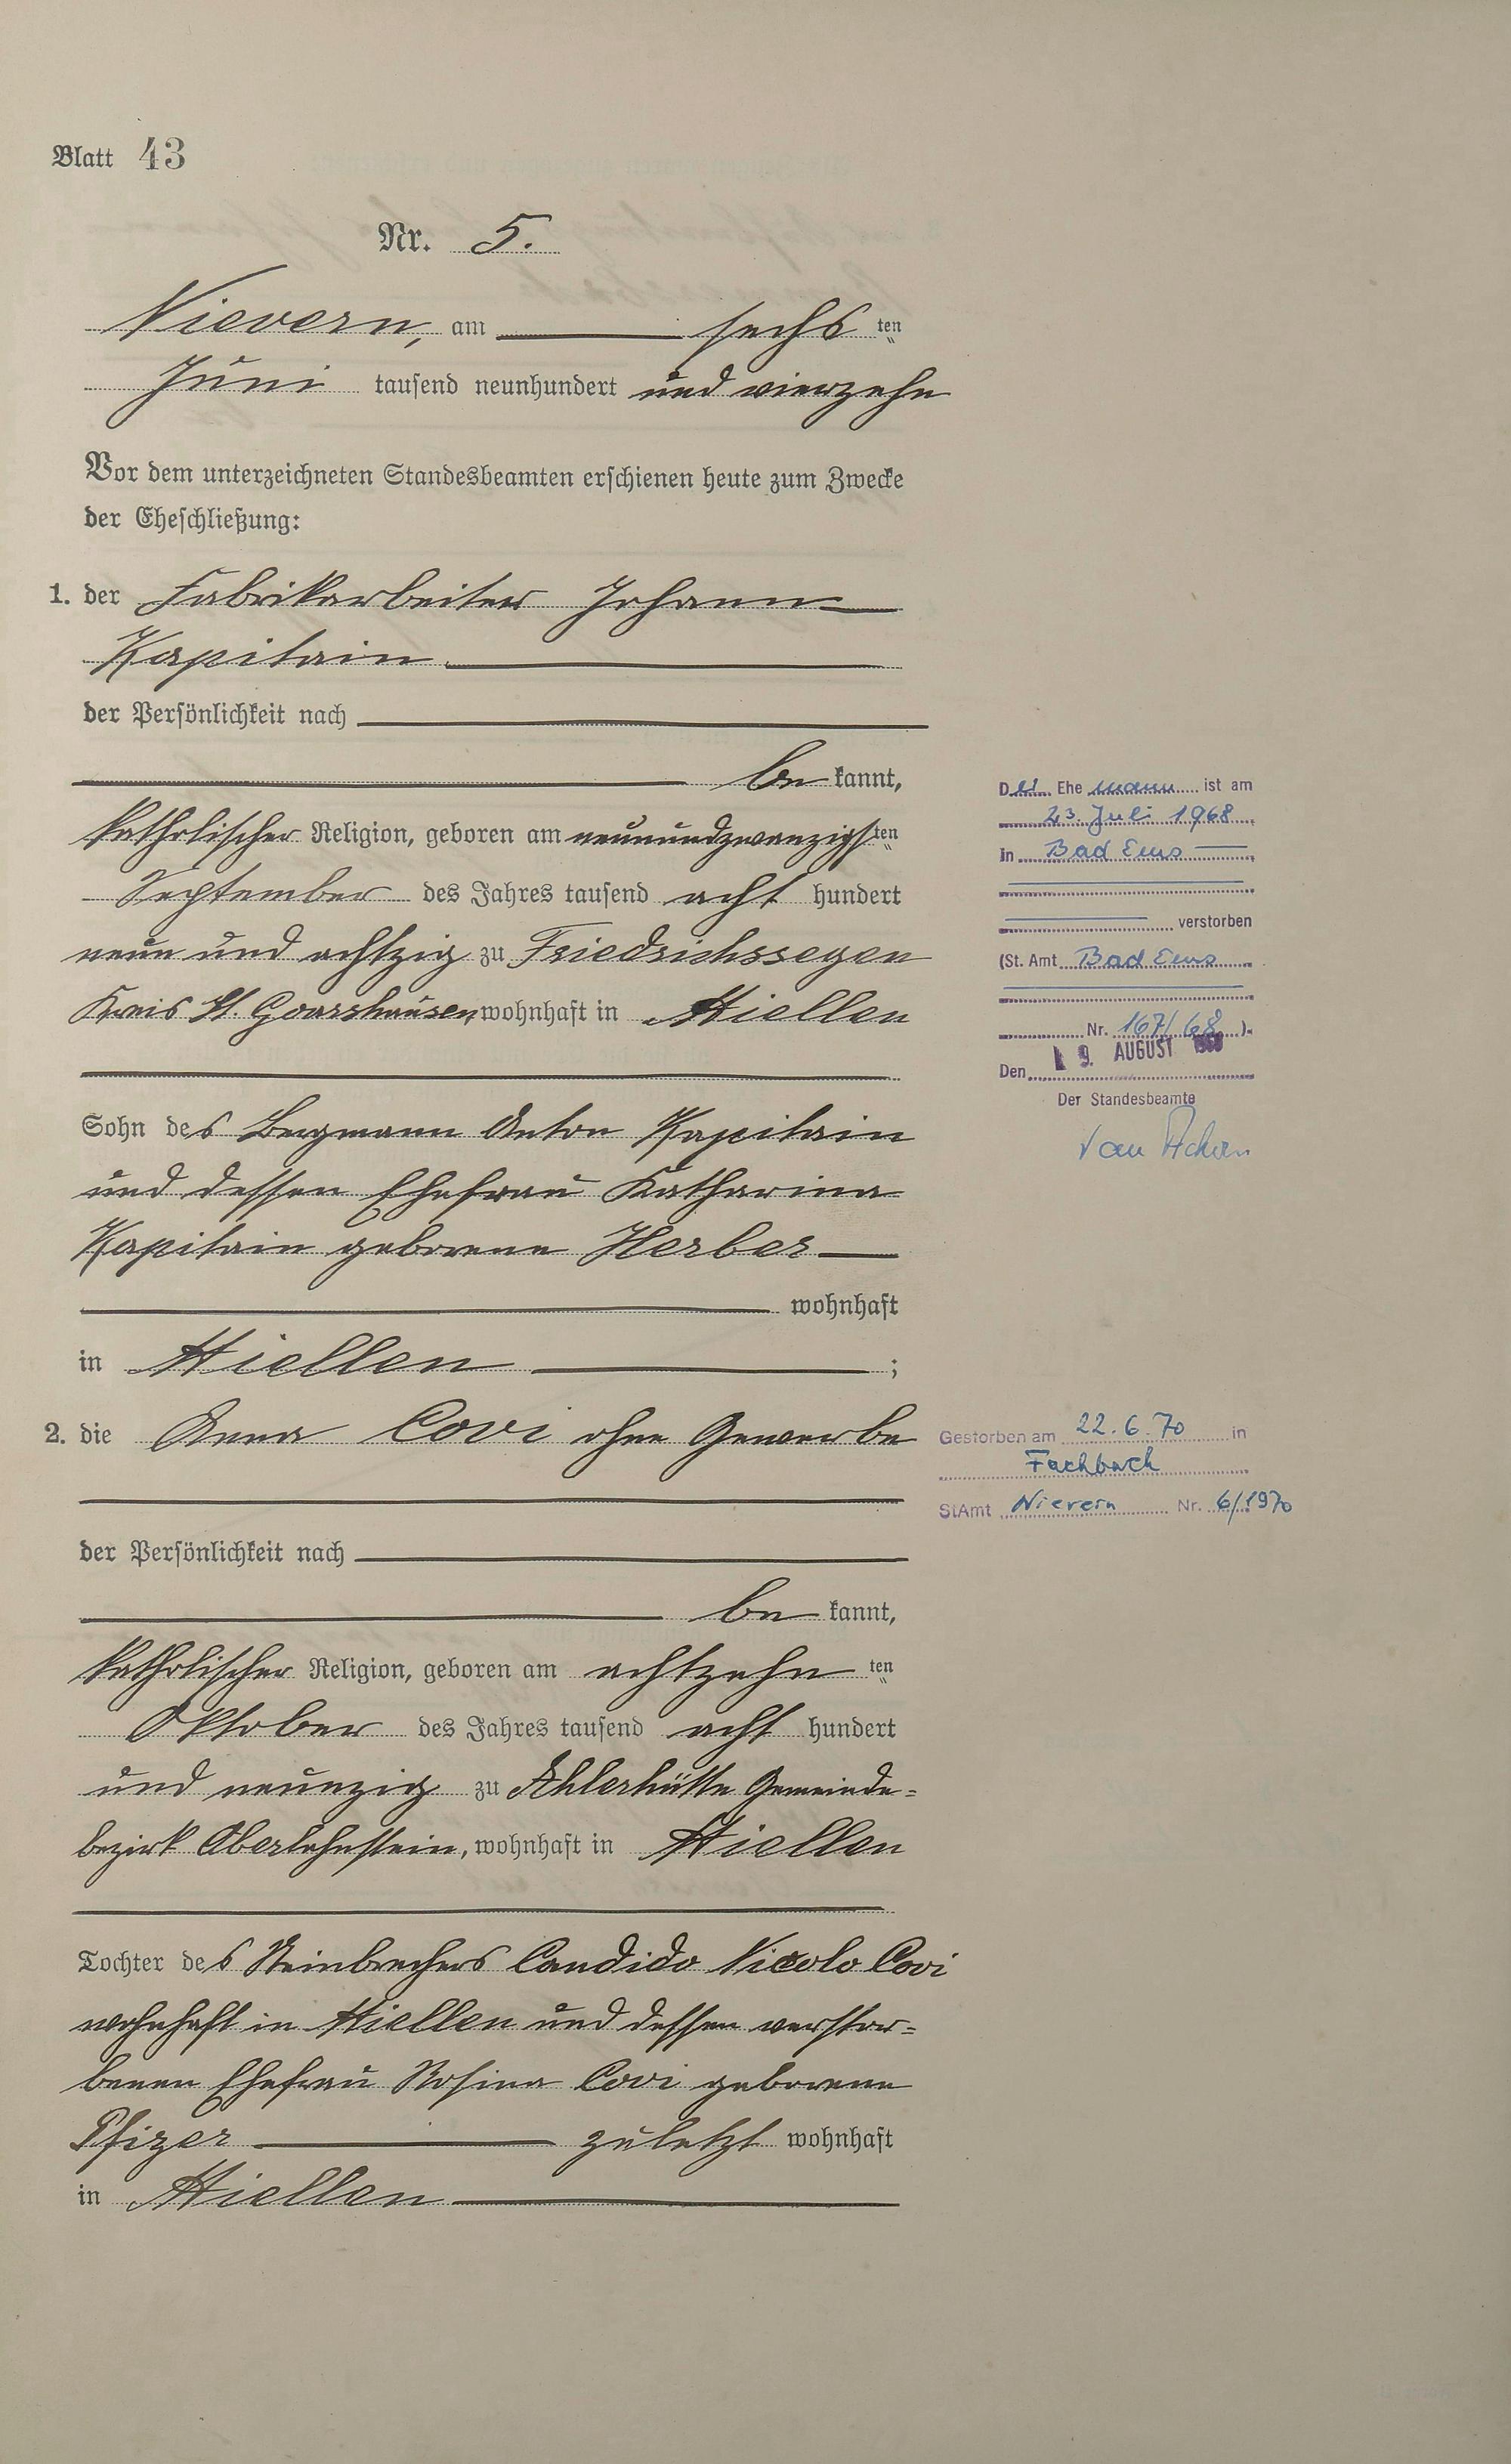 Blatt 43
Nr. 5.
Nievern, am sechs ten
Juni tausend neunhundert und vierzehn
Vor dem unterzeichneten Standesbeamten erschienen heute zum Zwecke
der Eheschließung:
1. der Fabrikarbeiter Johann
Kapitain
der Persönlichkeit nach
be kannt,
katholischer Religion, geboren am neunundzwanzigsten
September des Jahres tausend acht hundert
neun und achtzig zu Friedrichssegen
Kreis St. Goarshausen, wohnhaft in Miellen
Sohn des Bergmann Anton Kapitain
und dessen Ehefrau Katharina
Kapitain geborene Herber
wohnhaft
in Miellen ;
2. die Anna Covi ohne Gewerbe
der Persönlichkeit nach
be kannt,
katholischer Religion, geboren am achtzehn ten
Oktober des Jahres tausend acht hundert
und neunzig zu Ahlerhütte Gemeinde-
bezirk Oberlahnstein, wohnhaft in Miellen
Tochter des Steinbrechers Candido Nicolo Covi
wohnhaft in Miellen und dessen verstor-
benen Ehefrau Rosina Covi geborene
Pfizer zuletzt wohnhaft
in Miellen
Der Ehe mann ist am
23. Juli 1968
in Bad Ems
verstorben
(St. Amt Bad Ems
Nr. 167/68 ).
Den 9. AUGUST
Der Standesbeamte
Gestorben am 22.6.70 in
Fachbach
StAmt Nievern Nr. 6/1970